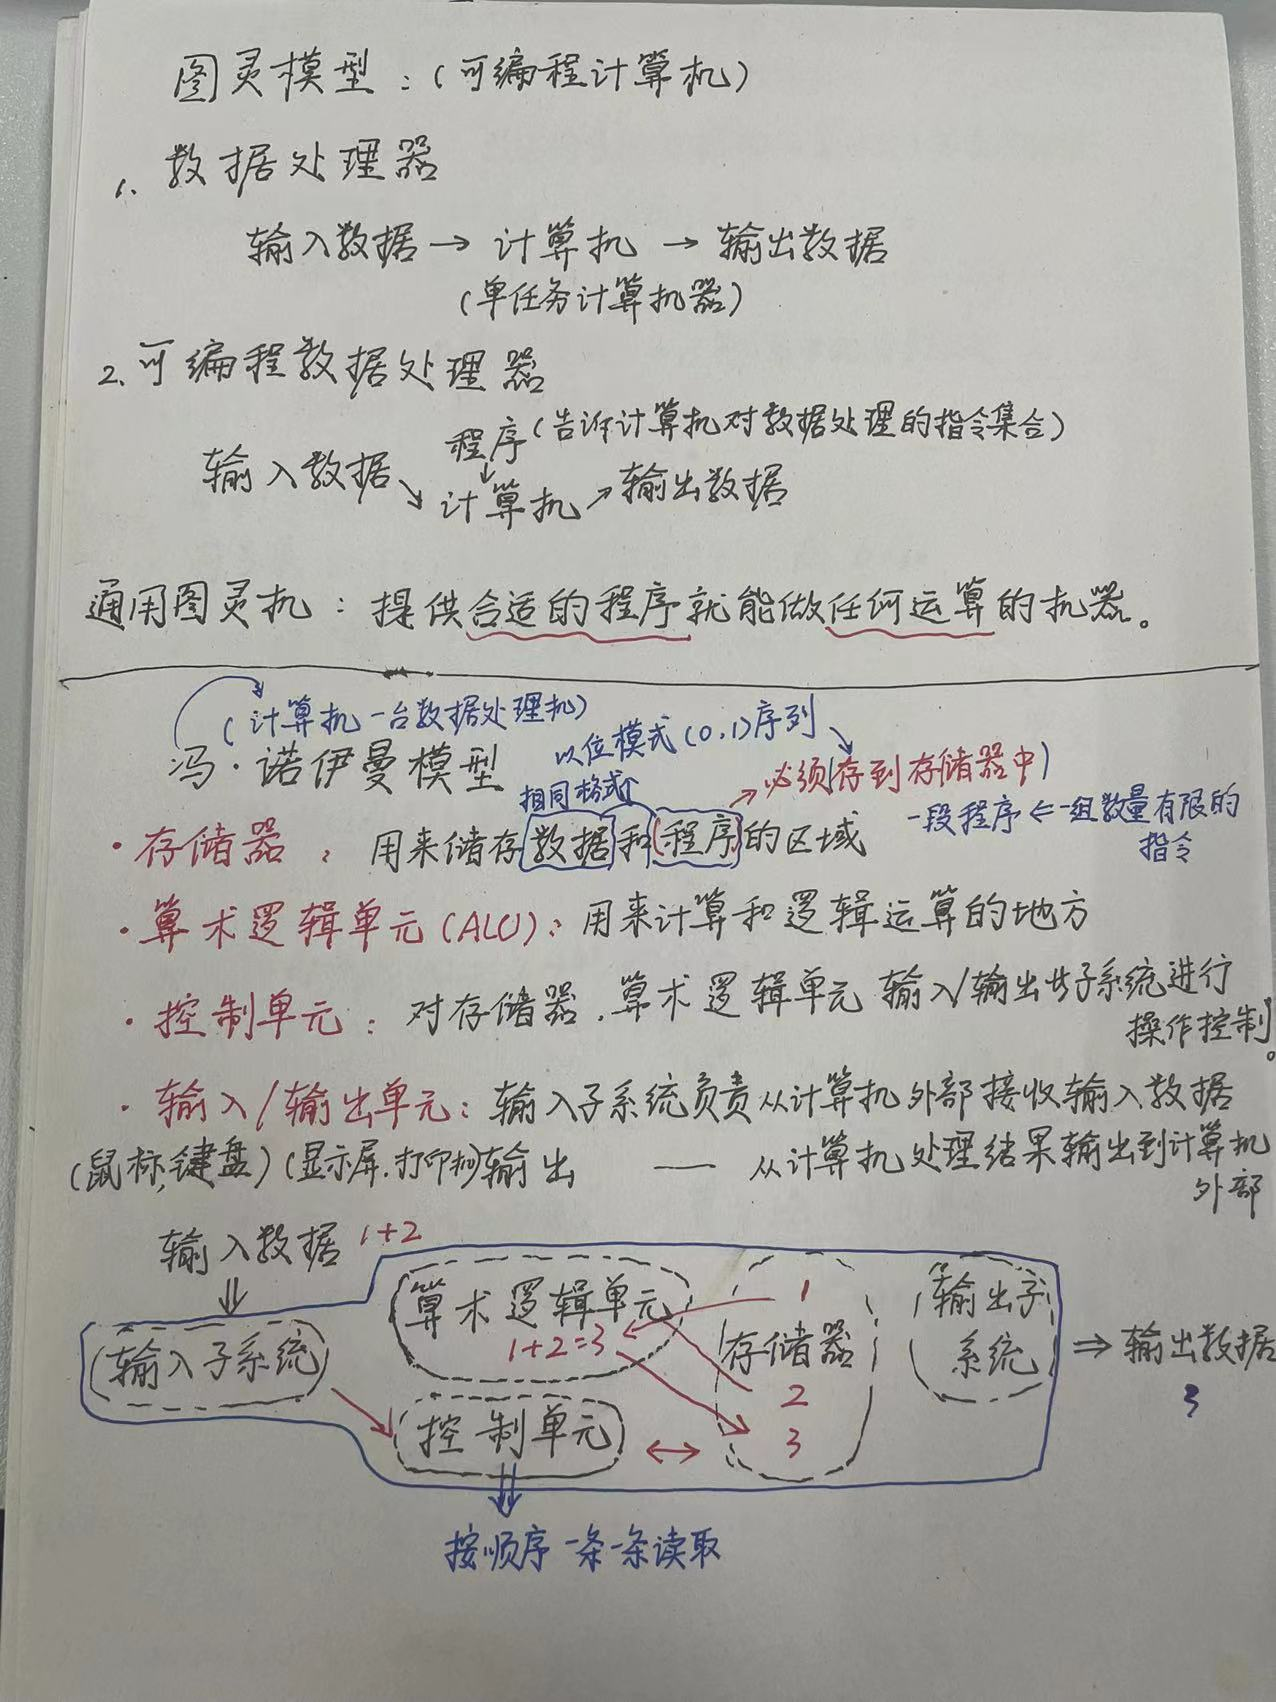 图灵模型：(可编程计算机)
1. 数据处理器
输入数据→计算机→输出数据
(单任务计算机器)
2.可编程数据处理器
程序(告诉计算机对数据处理的指令集合)
输入数据↘计算机↗输出数据
通用图灵机：提供合适的程序就能做任何运算的机器。
(计算机一台数据处理机)
以位模式(0,1)序列
冯·诺伊曼模型
相同格式
必须(存到存储器中)
一段程序⇐一组数量有限的
指令
·存储器：用来储存数据和(程序)的区域
·算术逻辑单元(ALU)：用来计算和逻辑运算的地方
·控制单元：对存储器.算术逻辑单元 输入/输出等子系统进行
操作控制。
·输入/输出单元：输入子系统负责从计算机外部接收输入数据
(鼠标,键盘)(显示屏.打印机)输出 —— 从计算机处理结果输出到计算机
外部
输入数据 1+2
⇓
输入子系统
算术逻辑单元
1+2=3
控制单元
1
存储器
2
3
输出子
系统
⇒输出数据
3
按顺序一条一条读取